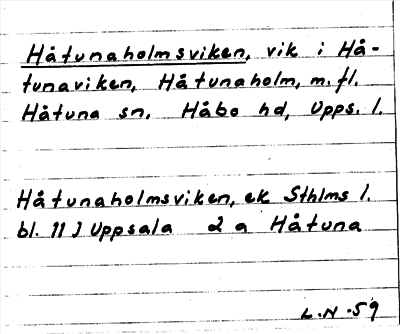 Håtunaholmsviken, vik i Hå-
tunaviken, Håtunaholm, m.fl.
Håtuna sn. Håbo hd, Upps. l.
Håtunaholmsviken, ek Sthlms l.
bl. 11 J Uppsala 2 a Håtuna
L.N.59